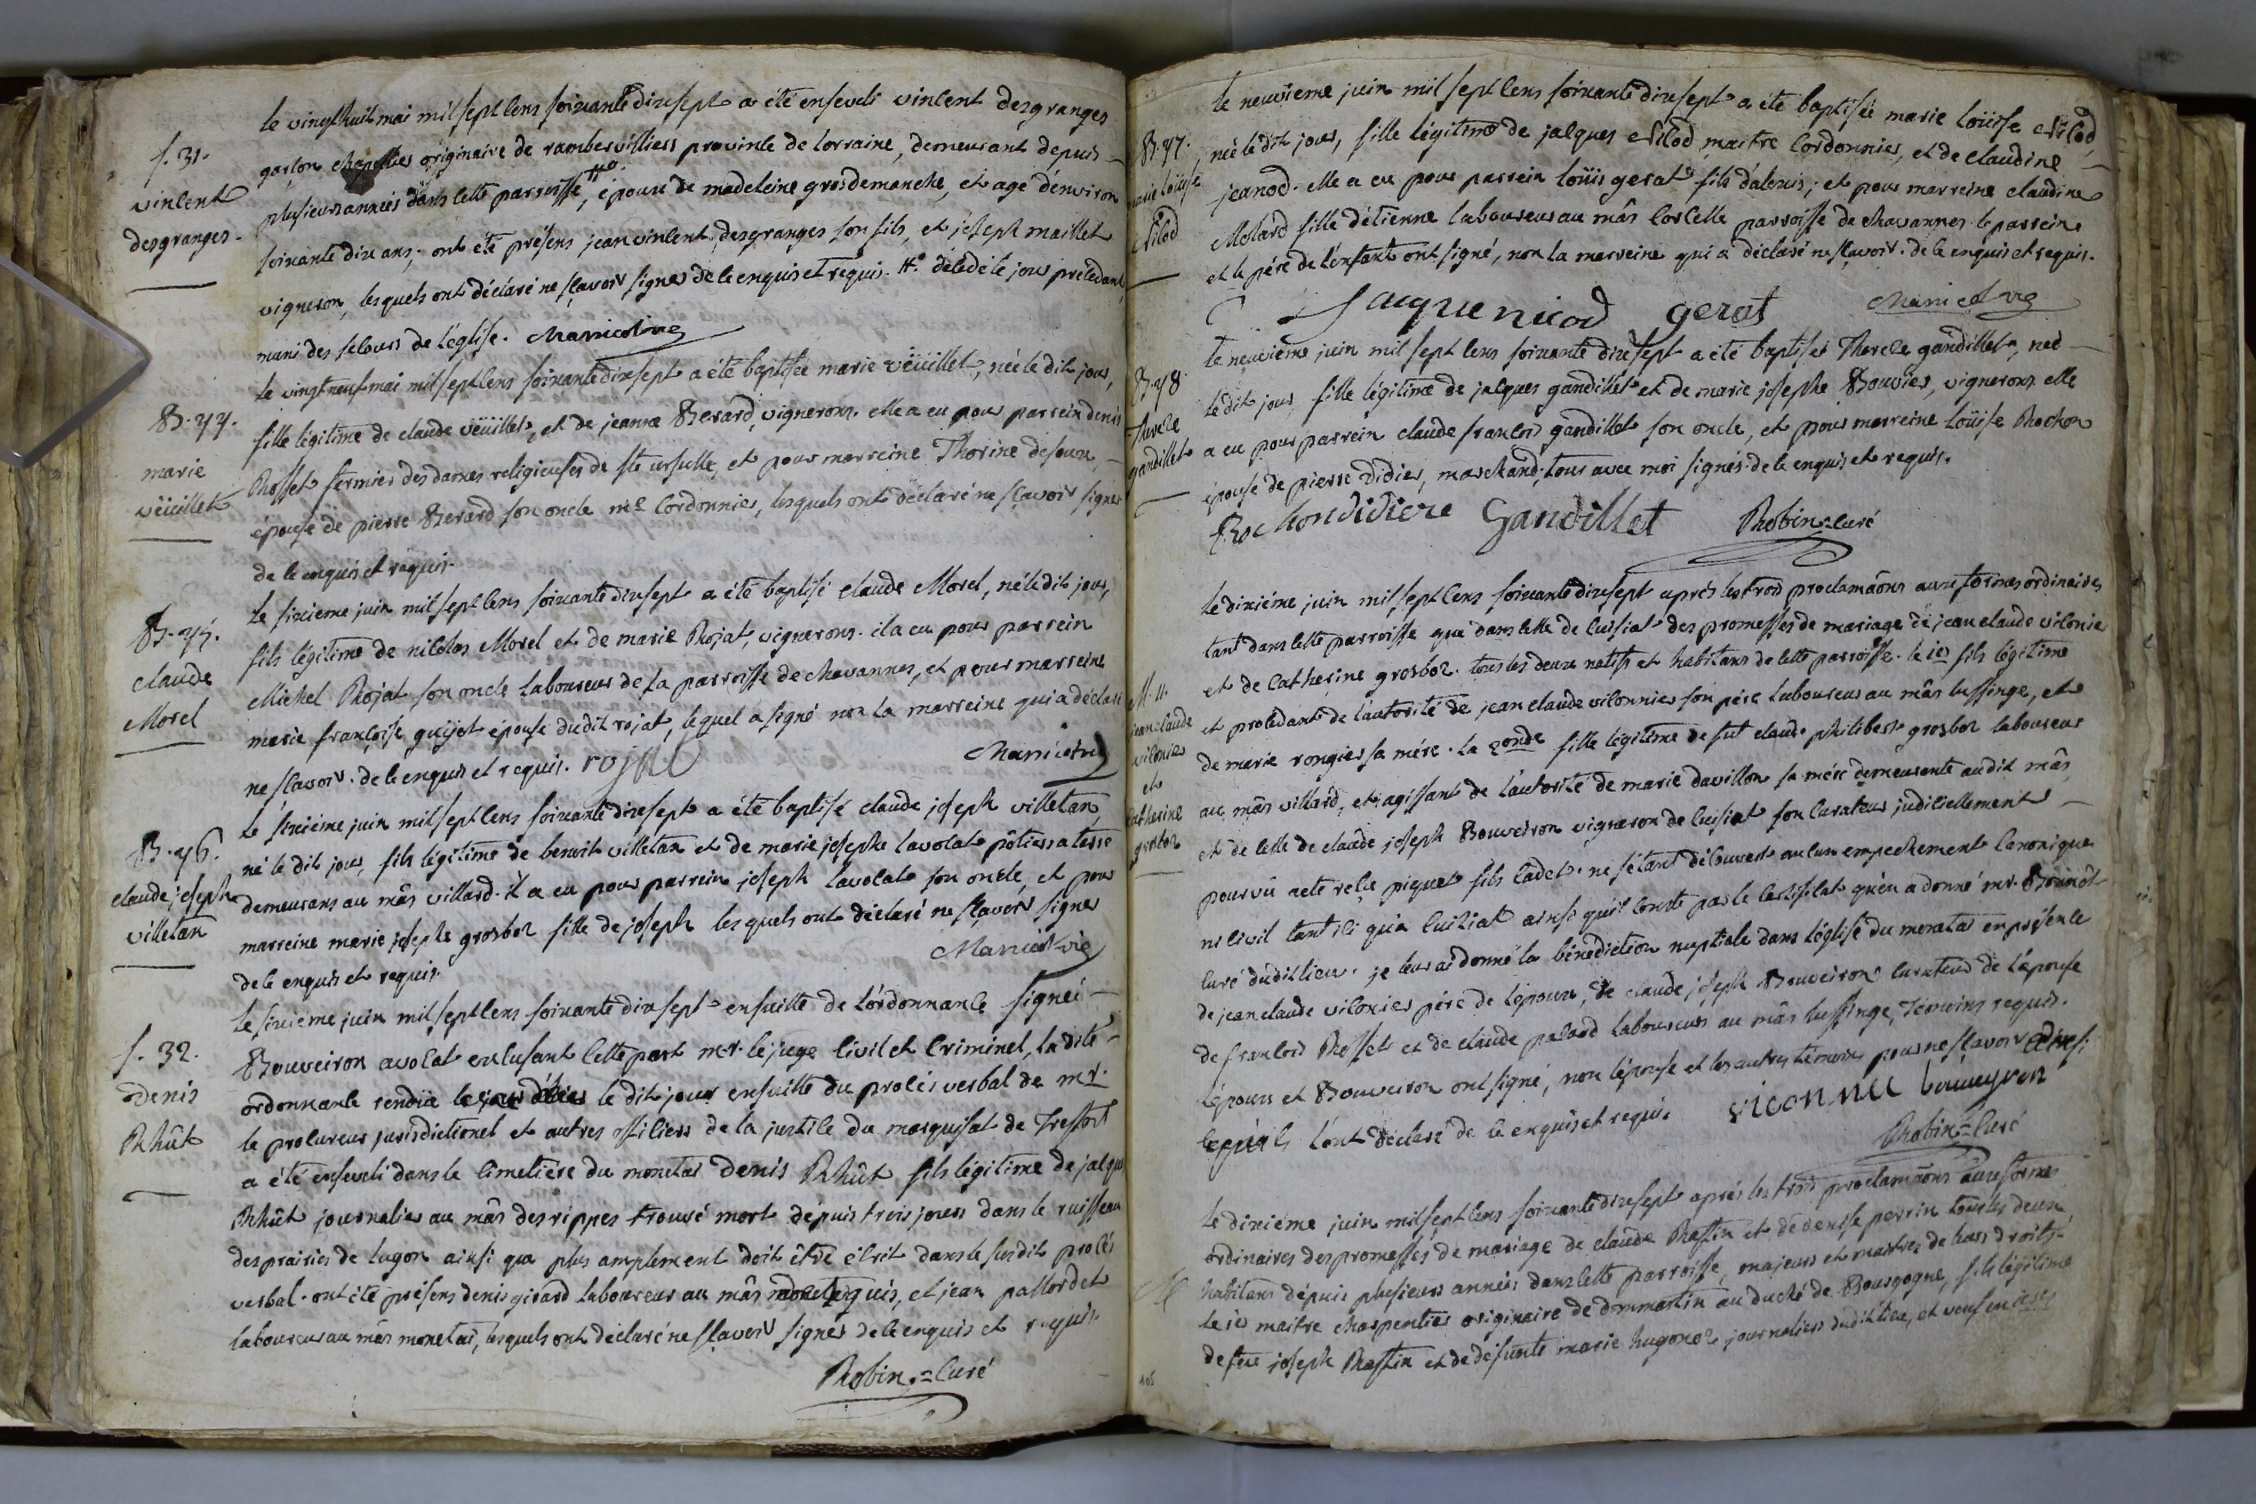 le vingt huit mai mil sept cens soixante dix sept a été enseveli vincent desgranges
s. 31.
vincent
desgranges.
garçon chapellier originaire de rambervilliers province de lorraine, demeurant depuis
plusieurs années dans cette parroisse, #o époux de madeleine grosdemanche, et agé d'environ
soixante dix ans; ont été présens jean vincent desgranges son fils, et joseph maillet
vigneron, lesquels ont déclaré ne sçavoir signer de ce enquis et requis. #o décédé le jour précédant
muni des secours de l'église. Manicot vic
le vingt neuf mai mil sept cens soixante dix sept a été baptisée marie veüillet, née le dit jour,
B. 44.
marie
veüillet
fille légitime de claude veüillet, et de jeanne Berard, vignerons. elle a eu pour parrein denis
Rosset fermier des dames religieuses de ste ursulle, et pour marreine Thorine
épouse de pierre Berard son oncle me cordonnier, lesquels ont déclaré ne sçavoir signer
de ce enquis et requis.
le sixieme juin mil sept cens soixante dix sept a été baptisé claude Morel, né le dit jour,
B. 45.
claude
Morel
fils légitime de nicolas Morel et de marie Rojat, vignerons. il a eu pour parrein
Michel Rojat son oncle laboureur de la parroisse de chavannes, et pour marreine
marie françoise guijet épouse du dit rojat, lequel a signé non la marreine qui a déclaré
ne sçavoir. de ce enquis et requis. rojat Manicot vic
le sixième juin mil sept cens soixante dix sept a été baptisé claude joseph villetan,
B. 46.
claude joseph
villetan
né le dit jour, fils légitime de benoit villetan et de marie josephe lavocat pôtiers a terre
demeurans au mâs villard. il a eu pour parrein joseph lavocat son oncle, et pour
marreine marie josephe grosboz fille de joseph lesquels ont déclaré ne sçavoir signer
de ce enquis et requis. Manicot vic
le sixieme juin mil sept cens soixante dix sept ensuitte de l'ordonnance signée
s. 32.
denis
Rhût
Bouveiron avocat excusant cette part mr. le juge civil et criminel, la dite
ordonnance rendüe le dit jour ensuitte du procés verbal de mr.
le procureur jurisdictionel et autres officiers de la justice du marquisat de Treffort
a été enseveli dans le cimetiére du monetai denis Rhût fils légitime de jacque
Rhût journalier au mâs des rippes trouvé mort dépuis trois jours dans le ruisseau
des prairies de lugon ainsi qu'a plus amplement doit être écrit dans le susdit procés
verbal. ont été présens denis girard laboureur au mâs montequis, et jean pallordet
laboureur au mâs monetai, lesquels ont déclaré ne sçavoir signer de ce enquis et requis.
Robin = curé
le neuvieme juin mil sept cens soixante dix sept a été baptisée marie loüise Nicod,
B. 47.
marie loüise
Nicod
née le dit jour, fille légitime de jacques Nicod, maitre cordonnier, et de claudine
jeanod. elle a eu pour parrein loüis gerat fils d'alexis; et pour marreine claudine
Molard fille d'etienne laboureur au mâs corcelle parroisse de chavannes. le parrein
et le pére de l'enfant ont signé, non la marreine qui a déclaré ne sçavoir. de ce enquis et requis.
Jacque nicod gerat Manicot vic
le neuvième juin mil sept cens soixante dix sept a été baptisée Therese gandillet, née
B. 48.
Therese
gandillet
le dit jour fille légitime de jacques gandillet et de marie josephe Bouvier, vignerons. elle
a eu pour parrein claude françois gandillet son oncle, et pour marreine loüise Rochon
épouse de pierre didier, marchand, tous avec moi signés. de ce enquis et requis.
Rochon didiere Gandillet Robin = curé
le dixiéme juin mil sept cens soixante dix sept aprés les trois proclamãons aux formes ordinaires
M. 11.
jean claude
viconier
et
catherine
grosboz
tant dans cette parroisse que dans celle de cuisiat des promesses de mariage de jean claude viconier
et de catherine grosboz. tous les deux natifs et habitans de cette parroisse. le 1er fils légitime
et procédant de l'autorité de jean claude viconnier son pére laboureur au mâs lussinge, et
de marie rongier sa mére. la 2onde fille légitime de fut claude philibert grosboz laboureur
au mâs villard, et agissant de l'autorité de marie davillon sa mére demeurante au dit mâs
et de celle de claude joseph Bouveiron vigneron de cuisiat son curateur judiciellement
pourvû acte reçu piquet fils cadet. ne s'étant découvert aucun empechement canonique
ni civil tant ici qu'a cuisiat ainsi qu'il conste par le certificat qu'en a donné mr.
curé du dit lieu. je leur ai donné la bénédiction nuptiale dans l'église du monetai en présence
de jean claude viconier pére de l'époux, de claude joseph Bouveiron curateur de l'épouse
de françois Rosset et de claude palard laboureurs au mâs lussinge, témoins requis.
l'époux et Bouveiron ont signé, non l'épouse et les autres témoins pour ne sçavoir ainsi
qu'ils l'ont déclaré de ce enquis et requis viconnie bouveyron
Robin = curé
le dixiéme juin mil sept cens soixante dix sept aprés les trois proclamãons aux formes
M
ordinaires des promesses de mariage de claude Rastin et de denise perrin tous les deux
habitans dépuis plusieurs années dans cette parroisse, majeurs et maitres de leurs droits.
le 1er maitre charpentier originaire de dommartin au duché de Bourgogne, fils légitime
de feu joseph Rastin et de défunte marie hugonot journaliers du dit lieu, et veuf en
106